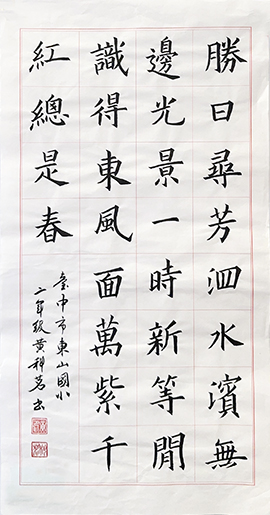 勝日尋芳泗水濱無
邊光景一時新等閒
識得東風面萬紫千
紅總是春
臺中市東山國小
二年級黃稚茗書